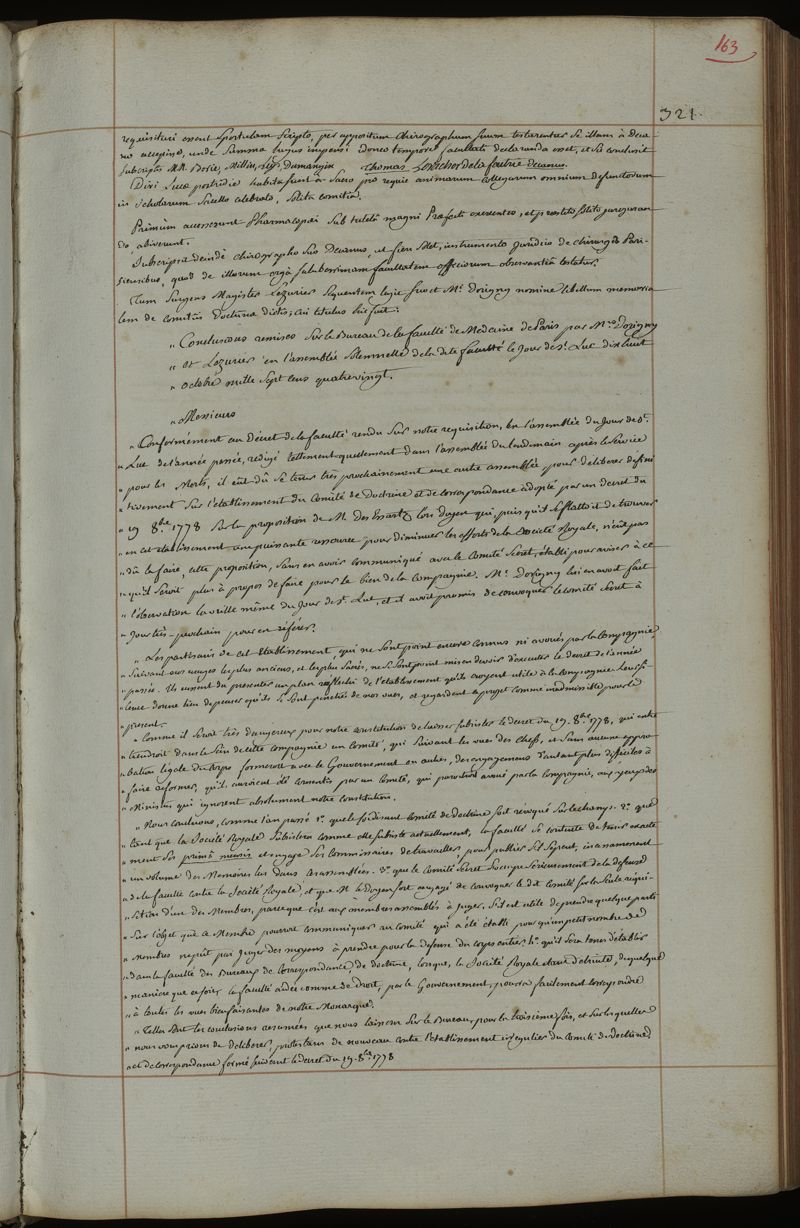 163
321.
requisituri essent sportulam scripto, per appositum chirographum suum testarentur se illam à Deca-
no accepisse, unde summa hujus impensi donec tempore facultati declaranda esset, et sic conclusit
subscriptis MM. Borie, Millin, Damangin Thomas Levacher de la feutrie decanus.
Divi Lucæ postridie habita sunt à sacro pro requie animarum collegarum omnium defunctorum
in scholarum sacello celebrato, solita comitia.
Primùm accesserunt Pharmacopæi sub tutelâ magni Præfecti exercentes, et præstito solito jurejuran-
do, abiverunt.
Subscripsit deindè chirographo suo Decanus, ut fieri solet, instrumento juridico de chirurgis Pari-
siensibus, quod de illorum ergà saluberrimam facultatem officiorum observantiâ testatur.
Tum surgens Magister Lezurier sequentem legit suo et Mri. Dorigny nomine libellum memoria-
lem de comitiis Doctrinæ dictis; cui titulus hic fuit:
" Conclusions remises sur le Bureau de la faculté de Médecine de Paris par Mrs. Dorigny
" et Lezurier en l'assemblée solemnelle de la dite faculté le Jour de St. Luc dix huit
" octobre mille sept cens quatrevingt.
" Messieurs
" Conformément au Décret de la faculté rendu sur notre requisition, en l'assemblée du Jour de St.
" Luc de l'année passée, redigé tellement quellement dans l'assemblée du lendemain après le service
" pour les Morts, il eût dû se tenir très prochainement une autre assemblée pour déliberer défini-
" tivement sur l'etablissement du Comité de Doctrine et de correspondance adopté par un decret du
" 19 8.bre 1778 sur la proposition de M. Des Essartz lors doyen qui, puis qu'il se flattoit de trouver
" en cet etablissement une puissante ressource pour diminuer les efforts de la société Royale, n'eût pas
" dû la faire, cette proposition, sans en avoir communiqué avec le Comité secret, établi pour aviser à ce
" qu'il seroit plus à propos de faire pour le bien de la Compagnie. Mr. Dorigny lui en avoit fait
" l'observation la veille même du Jour de St. Luc, et il avoit promis de convoquer le comité secret à
" Jour très-prochain pour en référer.
" Les partisans de cet Etablissement, qui ne sont point encore connus ni avoués par la Compagnie,
" suivant ses usages les plus anciens, et les plus sacrés, ne se sont point mis en devoir d'executer le decret de l'année
" passée. Ils eussent du présenter un plan réflechi de l'etablissement qu'ils croyent utile à la Compagnie. Leur si-
" lence donne lieu de penser qu'ils se sont penetrés de nos vues, et regardent ce projet comme inadmissible pour le
" present.
" Comme il seroit très dangereux pour notre constitution de laisser subsister le decret du 19. 8.bre 1778, qui entre-
" tiendroit dans le sein de cette compagnie un Comité, qui suivant les vues des chefs, et sans aucune appro-
" bation legale du corps formeroit avec le Gouvernement ou autres, des engagemens d'autant plus difficiles à
" faire reformer, qu'ils auroient été consentis par un Comité, qui paroitroit avoué par la Compagnie, aux yeux des
" Ministres qui ignorent absolument notre constitution.
" Nous concluons, comme l'an passé 1o. que le soidisant comité de Doctrine soit revoqué sur le champ. 2o. que
" tant que la Société Royale subsistera comme elle subsiste actuellement, la faculté se contente de tenir exacte-
" ment ses primâ mensis et engage ses Commissaires de travailler pour publier s'il se peut, incessamment
" un volume des Memoires lus dans ses assemblées. 3o. que le Comité secret s'occupe sérieusement de la defense
" de la faculté contre la Société Royale, et que M. le Doyen soit engagé de convoquer le dit Comité sur la seule requi-
" sition d'un des Membres, parce que c'est aux membres assemblés à juger, s'il est utile de prendre quelque parti
" sur l'objet que ce Membre pourroit communiquer au Comité qui a été établi pour qu'un petit nombre de
" Membres reçut pas juger des moyens à prendre pour la defense du corps entier. 4o. qu'il sera tems d'établir
" dans la faculté des Bureaux de Correspondance, de doctrine, lorsque, la Société Royale etant détruite, de quelque
" maniere que ce soit, la faculté aidée comme de droit, par le Gouvernement, pourra facilement correspondre
" à toutes les vues bienfaisantes de notre Monarque.
" Telles sont les conclusions resumées que nous laissons sur le Bureau, pour la troisième fois, et sur lesquelles
" nous vous prions de deliberer, protestans de nouveau contre l'etablissement irregulier du Comité de doctrine,
" et de correspondance formé suivant le decret du 19. 8.bre 1778